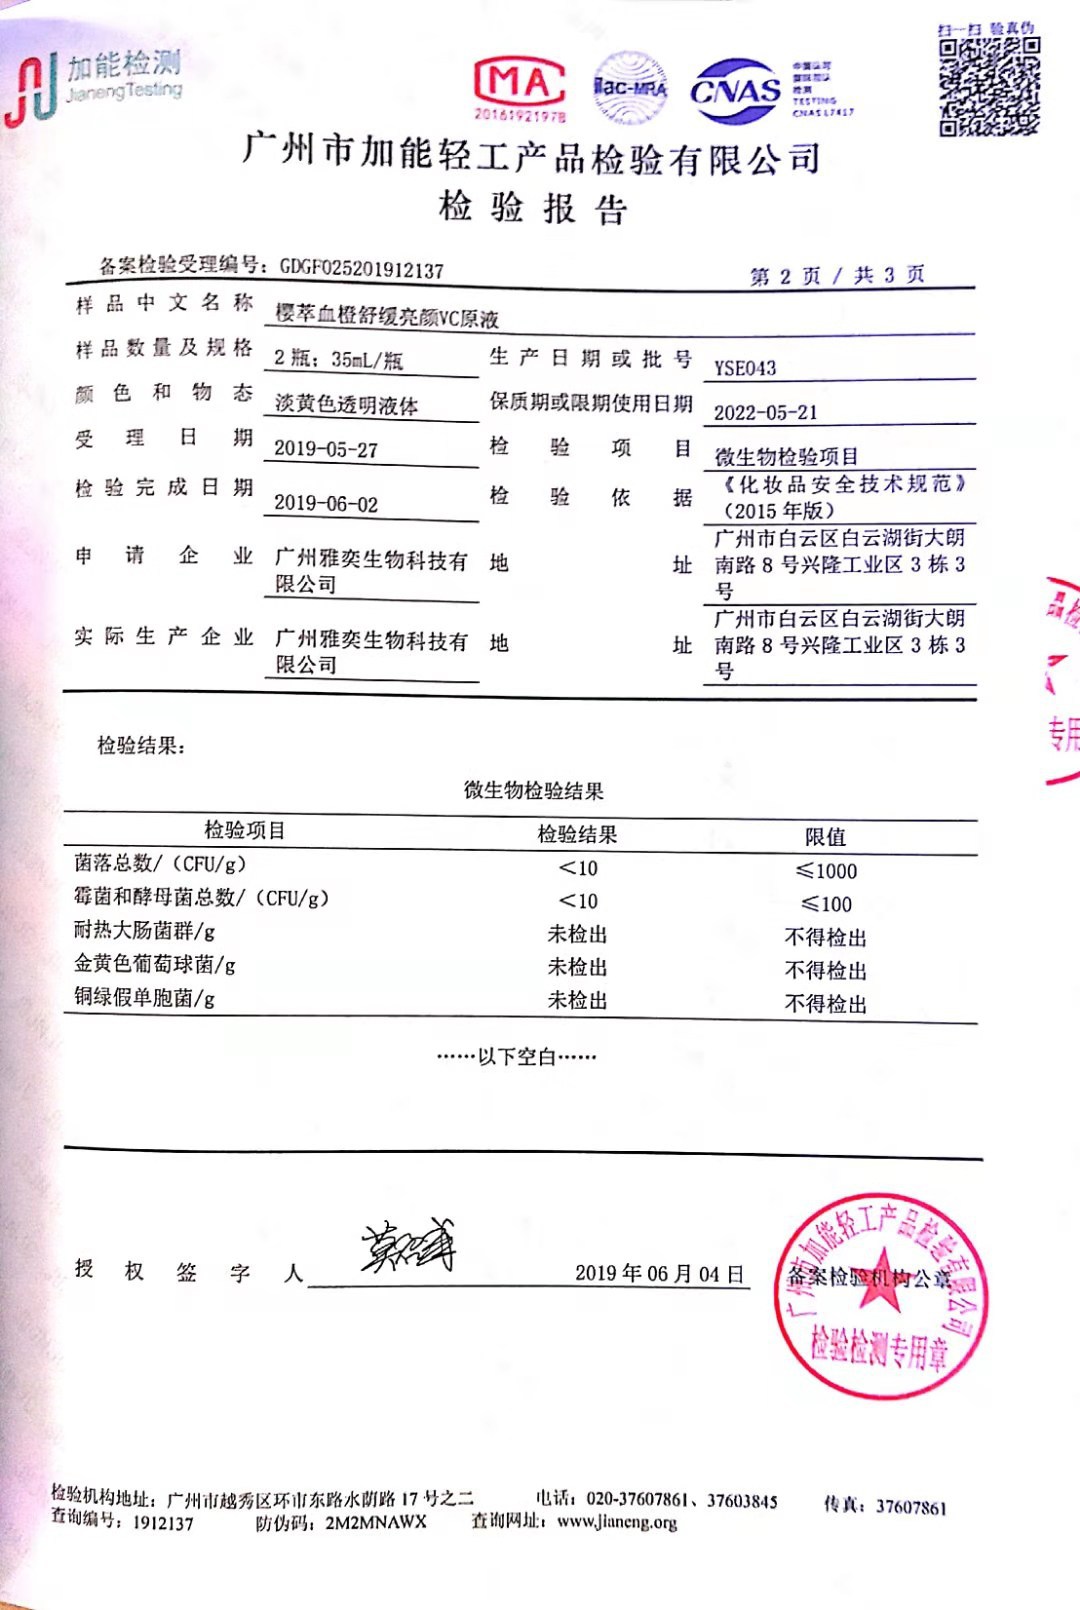 扫一扫 验真伪
加能检测
JianengTesting
MA
2016192197B
ilac-MRA
CNAS
中国认可
国际互认
检测
TESTING
CNAS L7417
广州市加能轻工产品检验有限公司
检验报告
备案检验受理编号：GDGF025201912137
第 2 页 / 共 3 页
样品中文名称 樱萃血橙舒缓亮颜VC原液
样品数量及规格 2 瓶；35mL/瓶 生产日期或批号 YSE043
颜色和物态 淡黄色透明液体 保质期或限期使用日期 2022-05-21
受理日期 2019-05-27 检验项目 微生物检验项目
检验完成日期 2019-06-02 检验依据 《化妆品安全技术规范》
（2015 年版）
申请企业 广州雅奕生物科技有限公司 地址 广州市白云区白云湖街大朗南路 8 号兴隆工业区 3 栋 3 号
实际生产企业 广州雅奕生物科技有限公司 地址 广州市白云区白云湖街大朗南路 8 号兴隆工业区 3 栋 3 号
品检
专用
检验结果：
微生物检验结果
检验项目 检验结果 限值
菌落总数/（CFU/g） <10 ≤1000
霉菌和酵母菌总数/（CFU/g） <10 ≤100
耐热大肠菌群/g 未检出 不得检出
金黄色葡萄球菌/g 未检出 不得检出
铜绿假单胞菌/g 未检出 不得检出
……以下空白……
授权签字人 2019 年 06 月 04 日
备案检验机构公章
广州市加能轻工产品检验有限公司
检验检测专用章
检验机构地址：广州市越秀区环市东路水荫路 17 号之二 电话：020-37607861、37603845 传真：37607861
查询编号：1912137 防伪码：2M2MNAWX 查询网址：www.jianeng.org